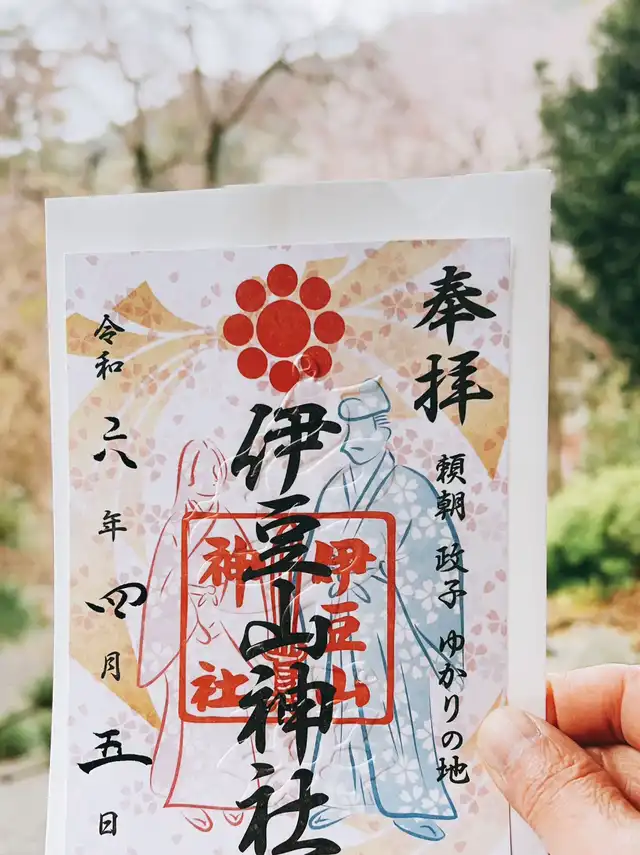 奉拝
頼朝 政子 ゆかりの地
伊豆山神社
伊豆山
神社
令和六年四月五日